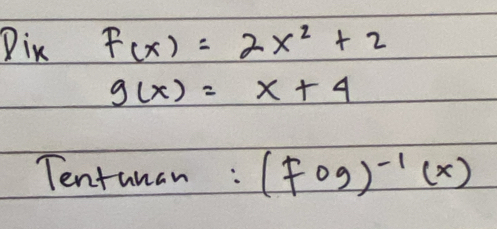 Dik F(x) = 2x² + 2
g(x) = x + 4
Tentukan : (Fog)⁻¹ (x)